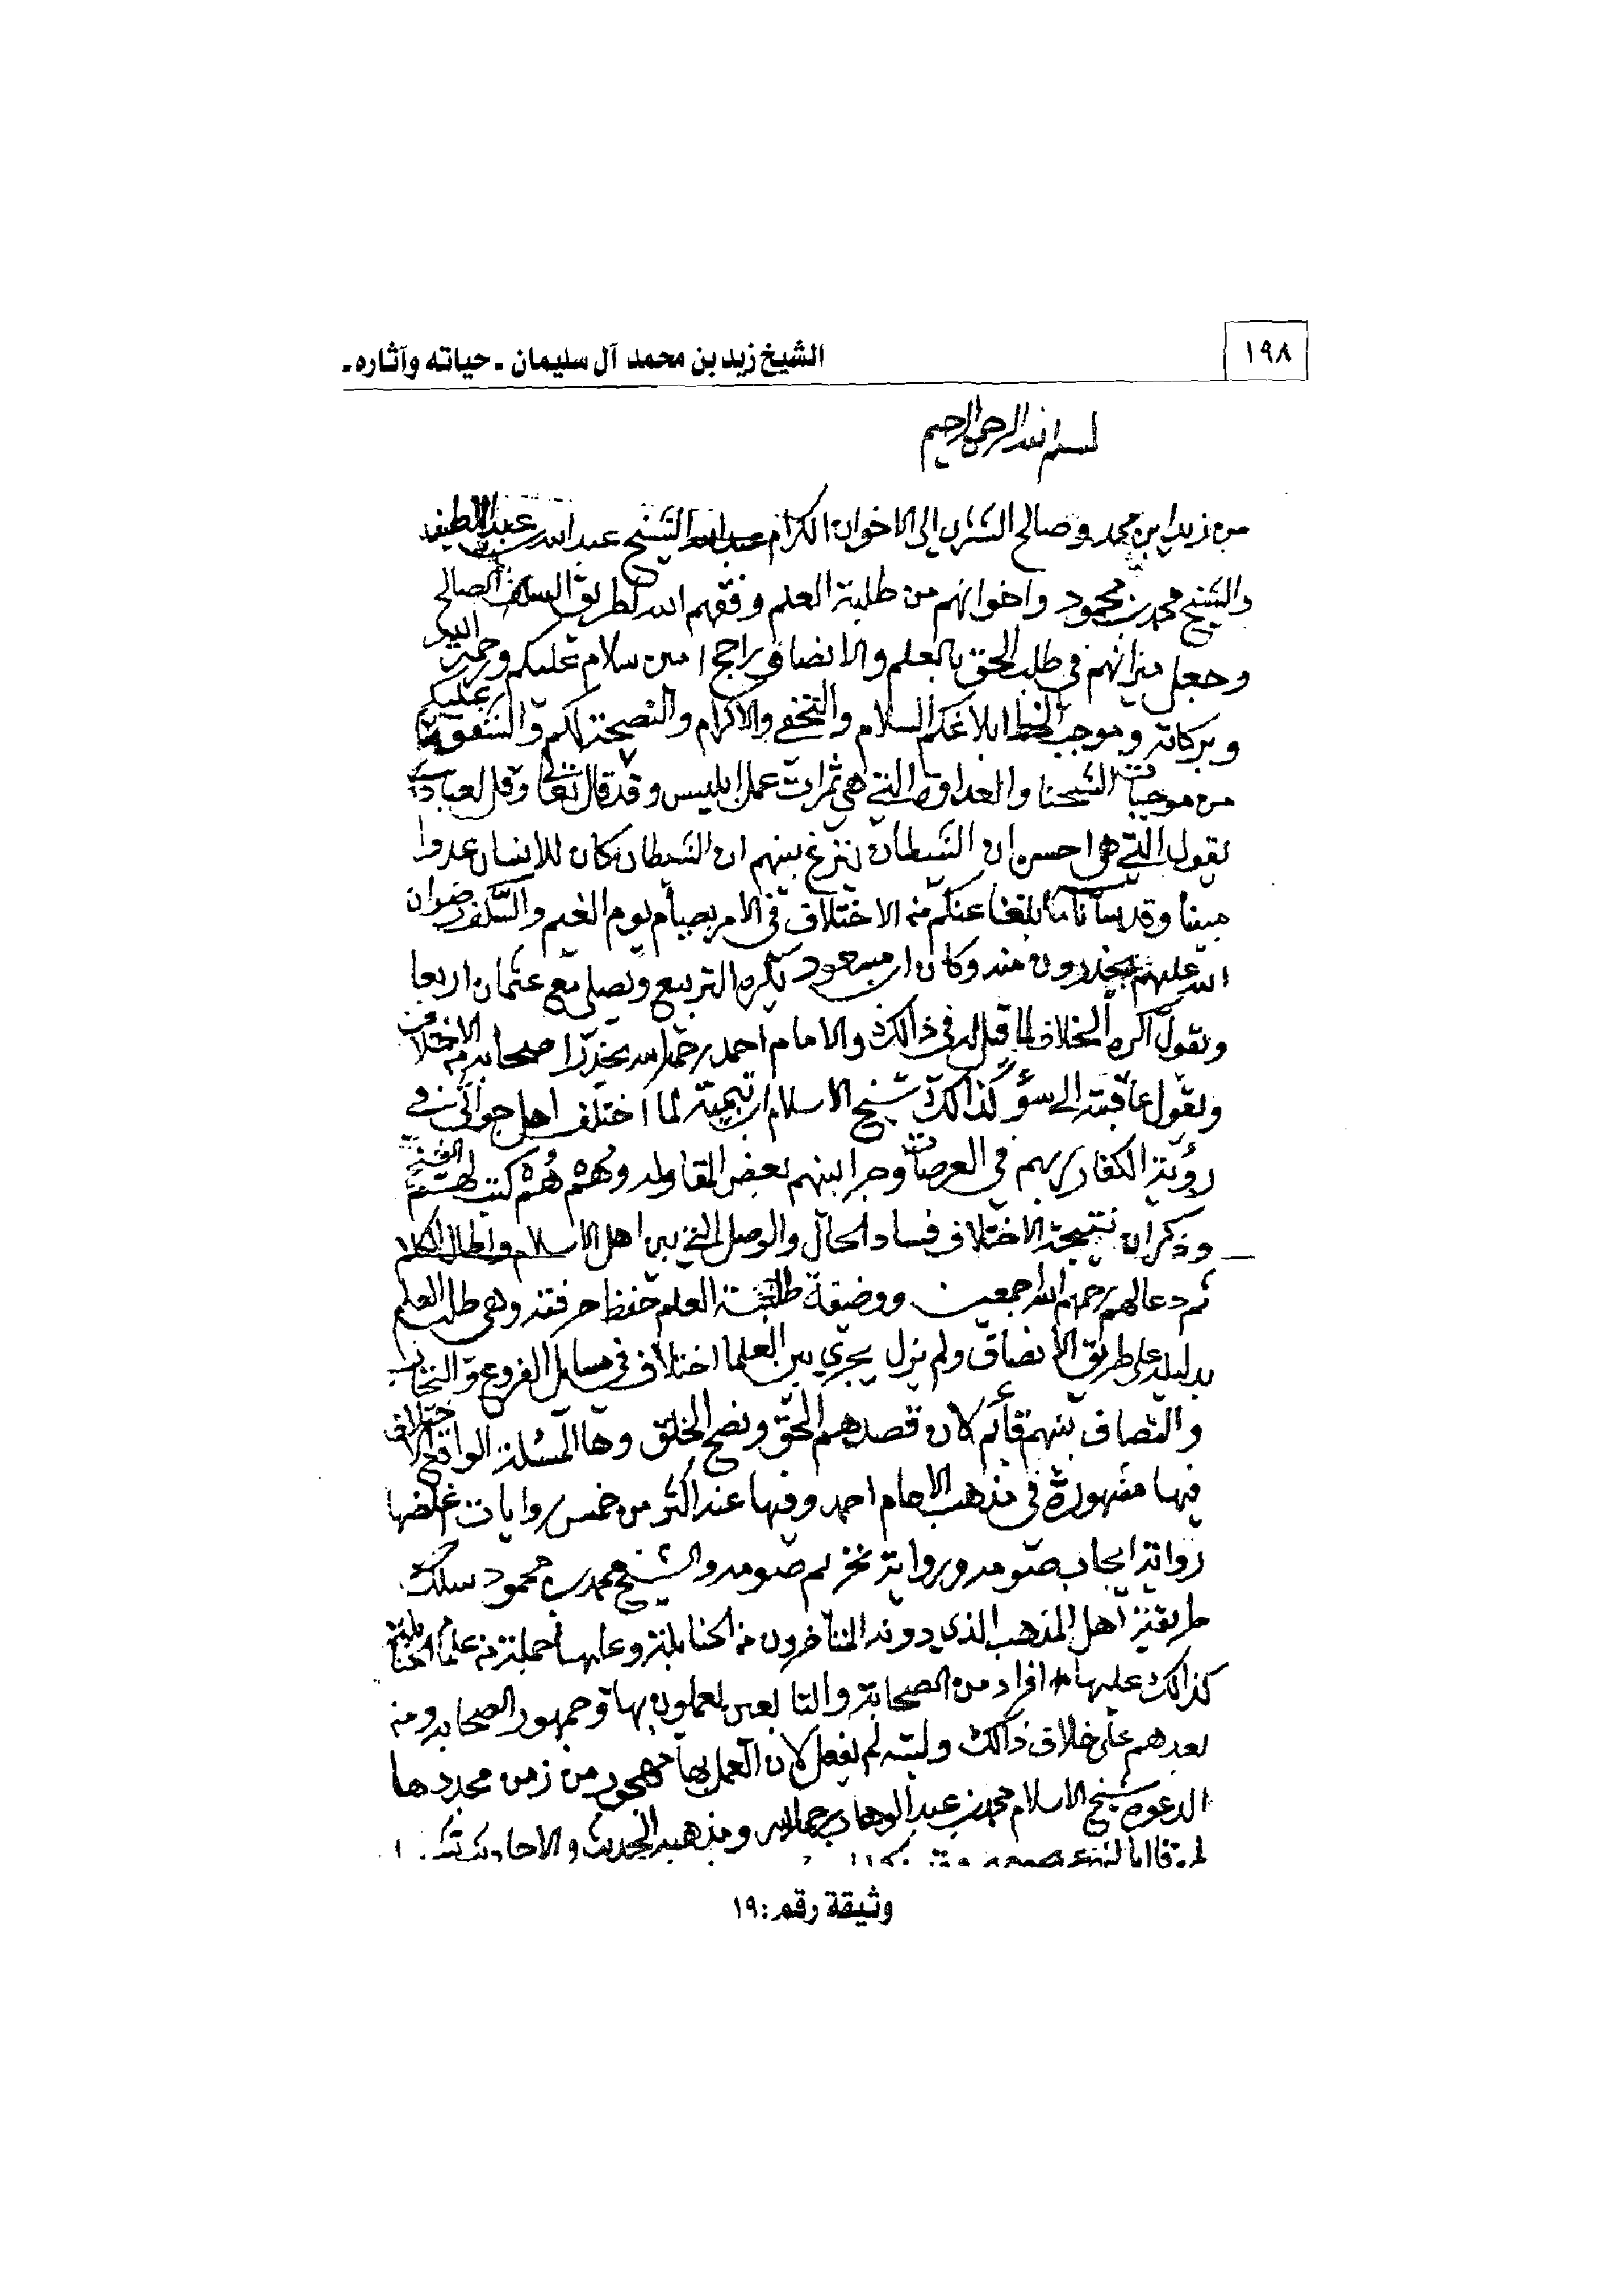 ١٩٨
الشيخ زيد بن محمد آل سليمان - حياته وآثاره -
بسم الله الرحمن الرحيم
من زيد ابن محمد وصالح الشثري الى الاخوان الكرام الشيخ عبد الله بن عبد اللطيف
والشيخ محمد بن محمود واخوانهم من طلبة العلم وفقهم الله لطريق السلف الصالح
وجعل ميزانهم في طلب الحق بالعلم والانصاف راجح امين سلام عليكم ورحمة الله
وبركاته وموجب الخط ابلاغكم السلام والتحفي والاكرام والنصيحة لكم والشفقة عليكم
من موجبات الشحنا والعداوة التي هي ثمرات عمل ابليس وقد قال تعالى وقل لعبادي
يقول التي هي احسن ان الشيطان ينزغ بينهم ان الشيطان كان للانسان عدوا
مبينا وقد سآنا ما بلغنا عنكم من الاختلاف في الامر بصيام يوم الغيم والسلف رضوان
الله عليهم يحذرون منه وكان ابن مسعود يكره التربيع ويصلي مع عثمان اربعا
ويقول اكره الخلاف لما قيل له في ذالك والامام احمد رحمه الله يحذر اصحابه من الاختلاف
ويقول عاقبته الى سؤ كذالك شيخ الاسلام ابن تيمية لما اختلف اهل جواثى في
رؤية الكفار ربهم في العرصات وجرا بينهم بعض المقاوله وهُم هُم كتب لهم
وذكر ان نتيجة الاختلاف فساد الحال والوصل التي بين اهل الاسلام واطال الكلام
ثم دعا لهم رحمهم الله اجمعين ووضيفة طلبة العلم حفظ حرفته وهي طلب العلم
بدليله على طريق الانصاف ولم يزل يجري بين العلما اختلاف في مسايل الفروع والتحاب
والتصاف بينهم قائم لان قصدهم الحق ونصح الخلق وها المسئلة الواقع الاختلاف
فيها مشهورة في مذهب الامام احمد وفيها عنه اكثر من خمس روايات
رواية ايجاب صومه ورواية تحريم صومه والشيخ محمد بن محمود سلك
طريقة اهل المذهب الذي دونه المتأخرون من الحنابلة وعليها جملة من علماء الحنابلة
كذالك عليها افراد من الصحابة والتابعين يعملون بها وجمهور الصحابه ومن
بعدهم على خلاف ذالك وليته لم يفعل لان العمل بها مهجور من زمن مجدد ها
الدعوه شيخ الاسلام محمد بن عبد الوهاب رحمه الله ومذهبه الحديث والاحاديث
وثيقة رقم: ١٩